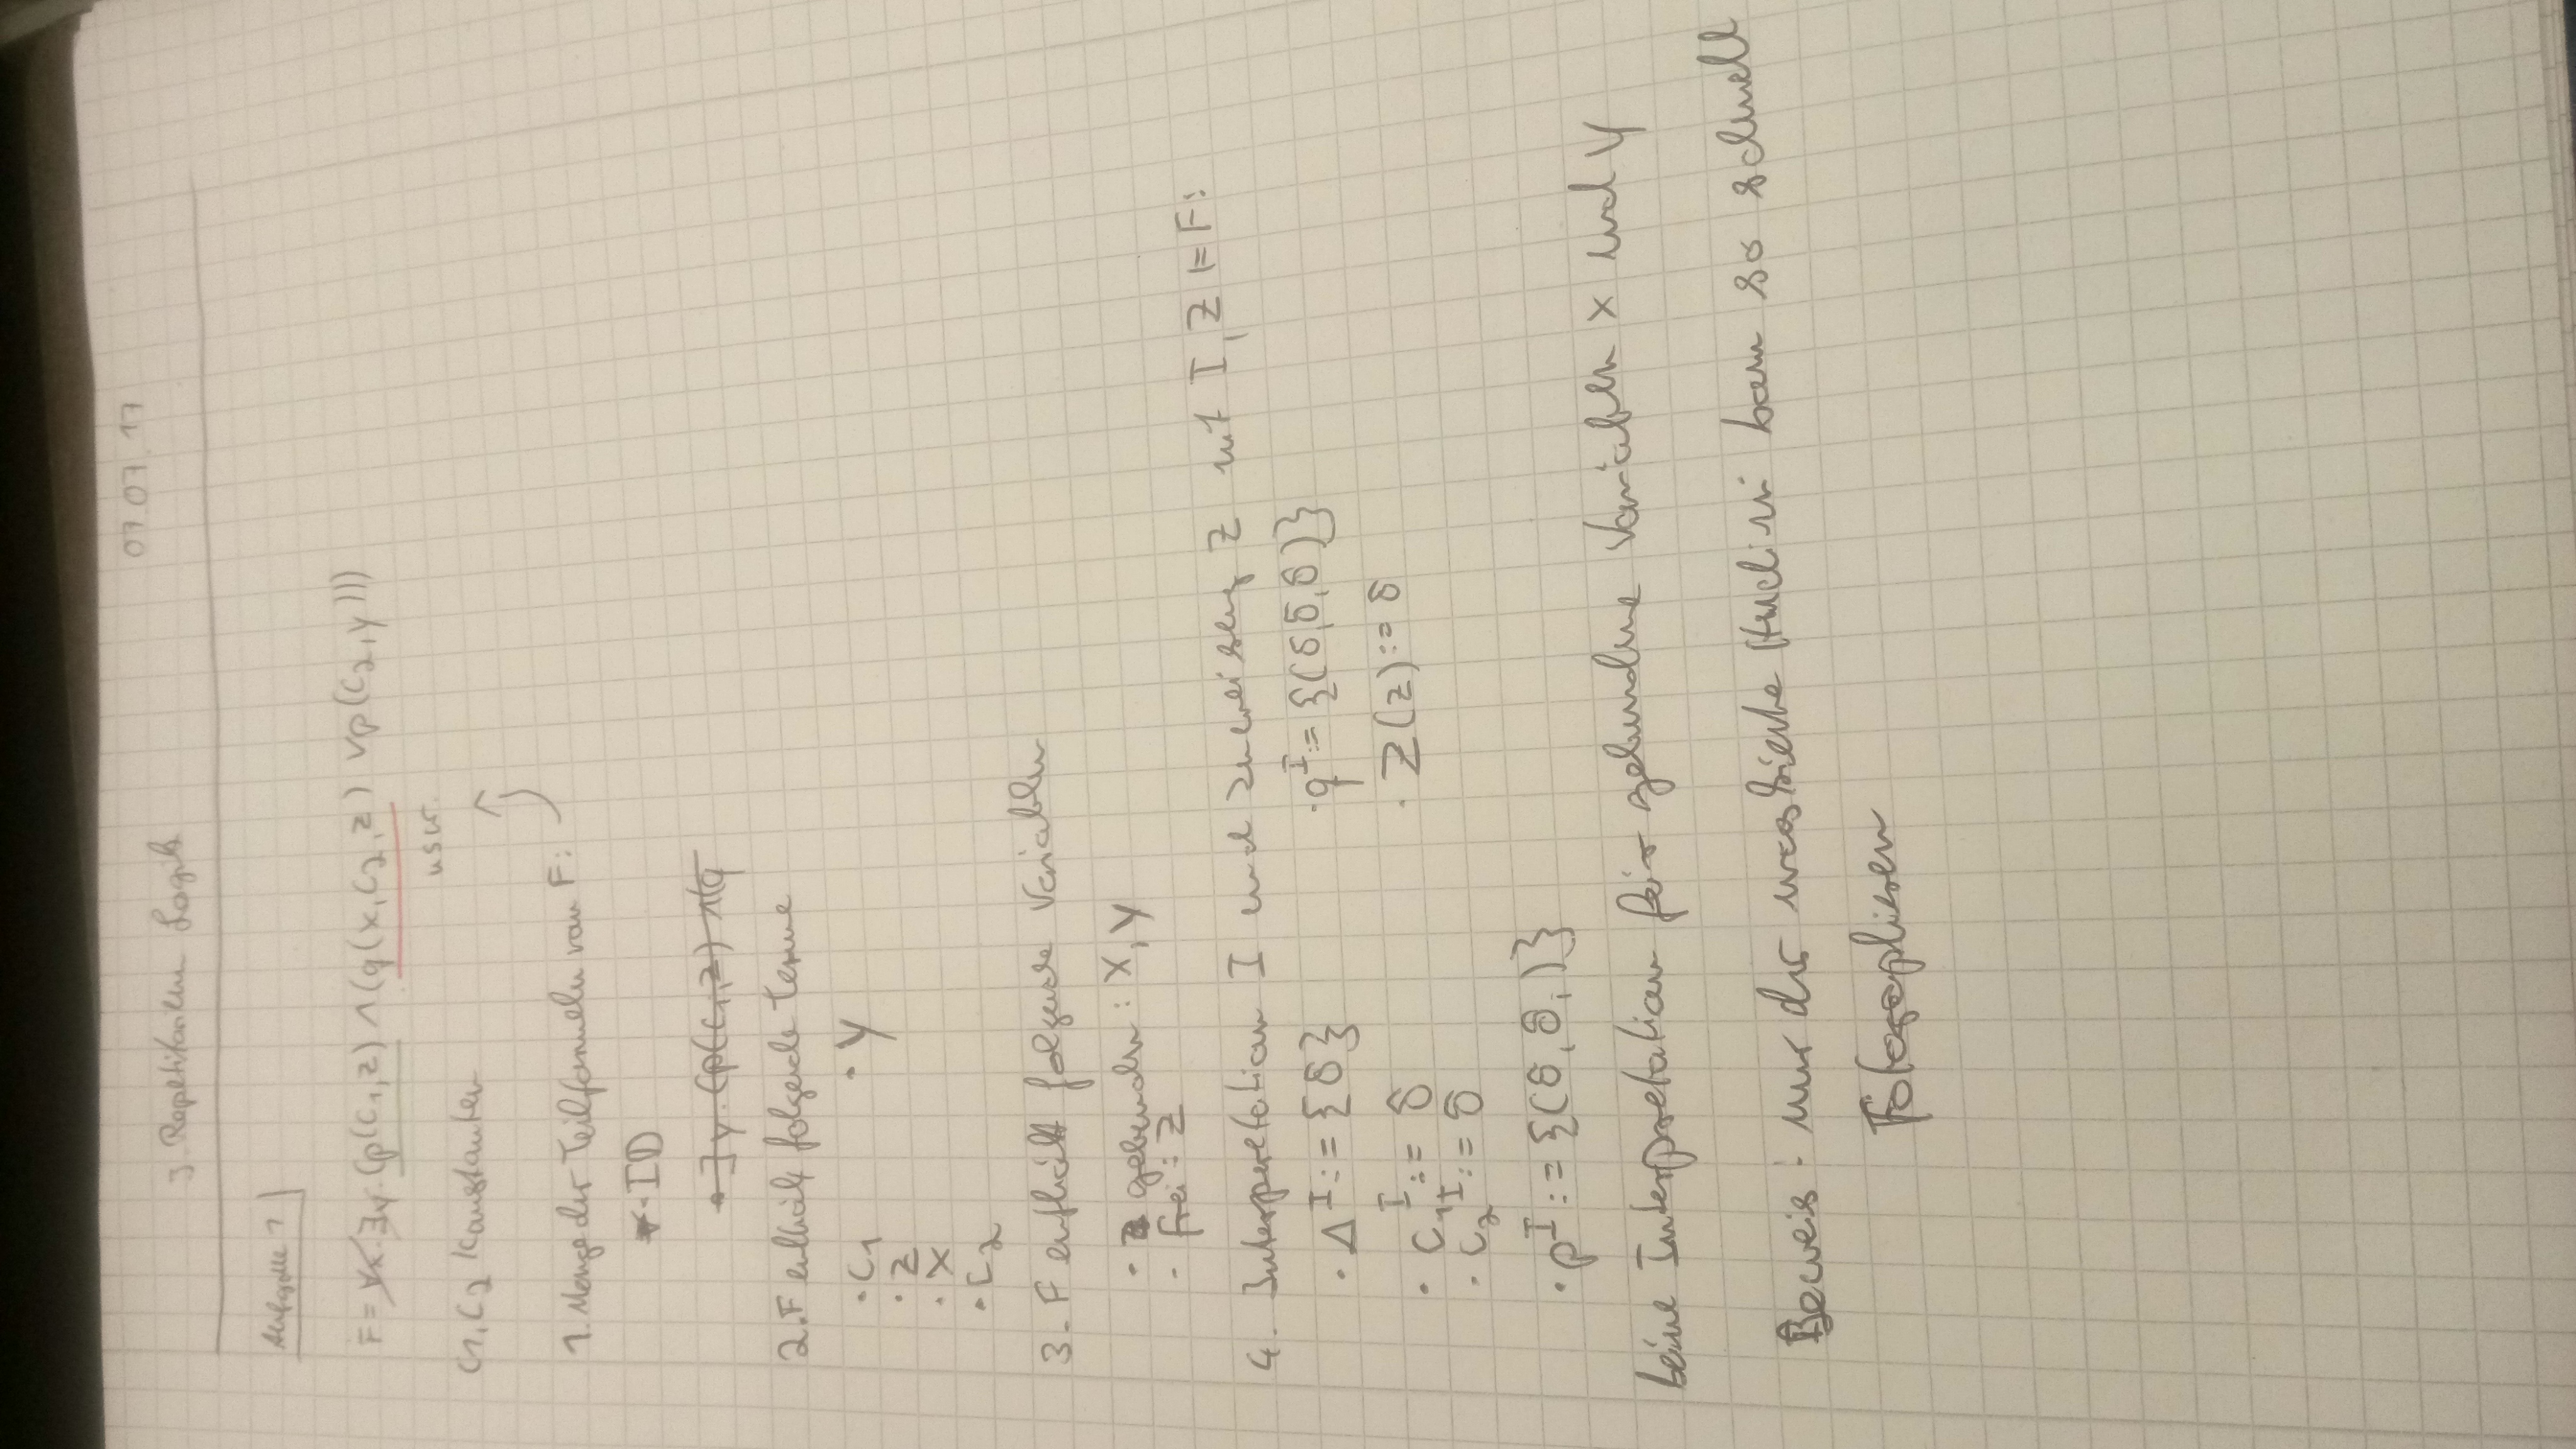 07.07.17
3. Repetitorium Logik
Aufgabe 1
F = ∀x.∃y.(p(c₁,z) ∧ (q(x,c₂,z) ∨ p(c₂,y)))
usw.
c1, c2 Konstanten
1. Menge der Teilformeln von F:
∃y.(p(c₁,z) ∧(q
2. F enthält folgende Terme
· c₁
· y
· z
· x
· c₂
3. F enthält folgende Variablen
- gebunden: x, y
- frei: z
4. Interpretation I und Zuweisung Z mit I, Z ⊨ F:
· Δᴵ := {δ}
· qᴵ := {(δ,δ,δ)}
· c₁ᴵ := δ
· Z(z) := δ
· c₂ᴵ := δ
· pᴵ := {(δ, δ,)}
keine Interpretation für gebundene Variablen x und y
Beweis: nur der kam so schnell
Fotographieren